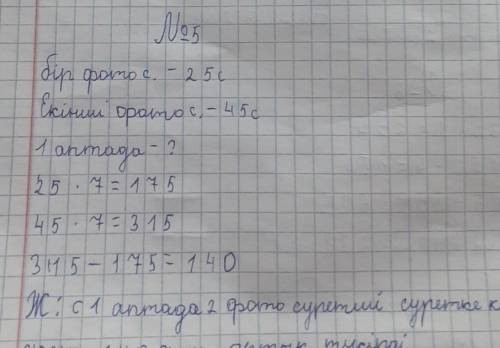 №5
бір фото с. - 25с
Екінші фото с. - 45с
1 аптада - ?
25 · 7 = 175
45 · 7 = 315
315 - 175 = 140
Ж: с 1 аптада 2 фото суретші суретке к
артық түсірді